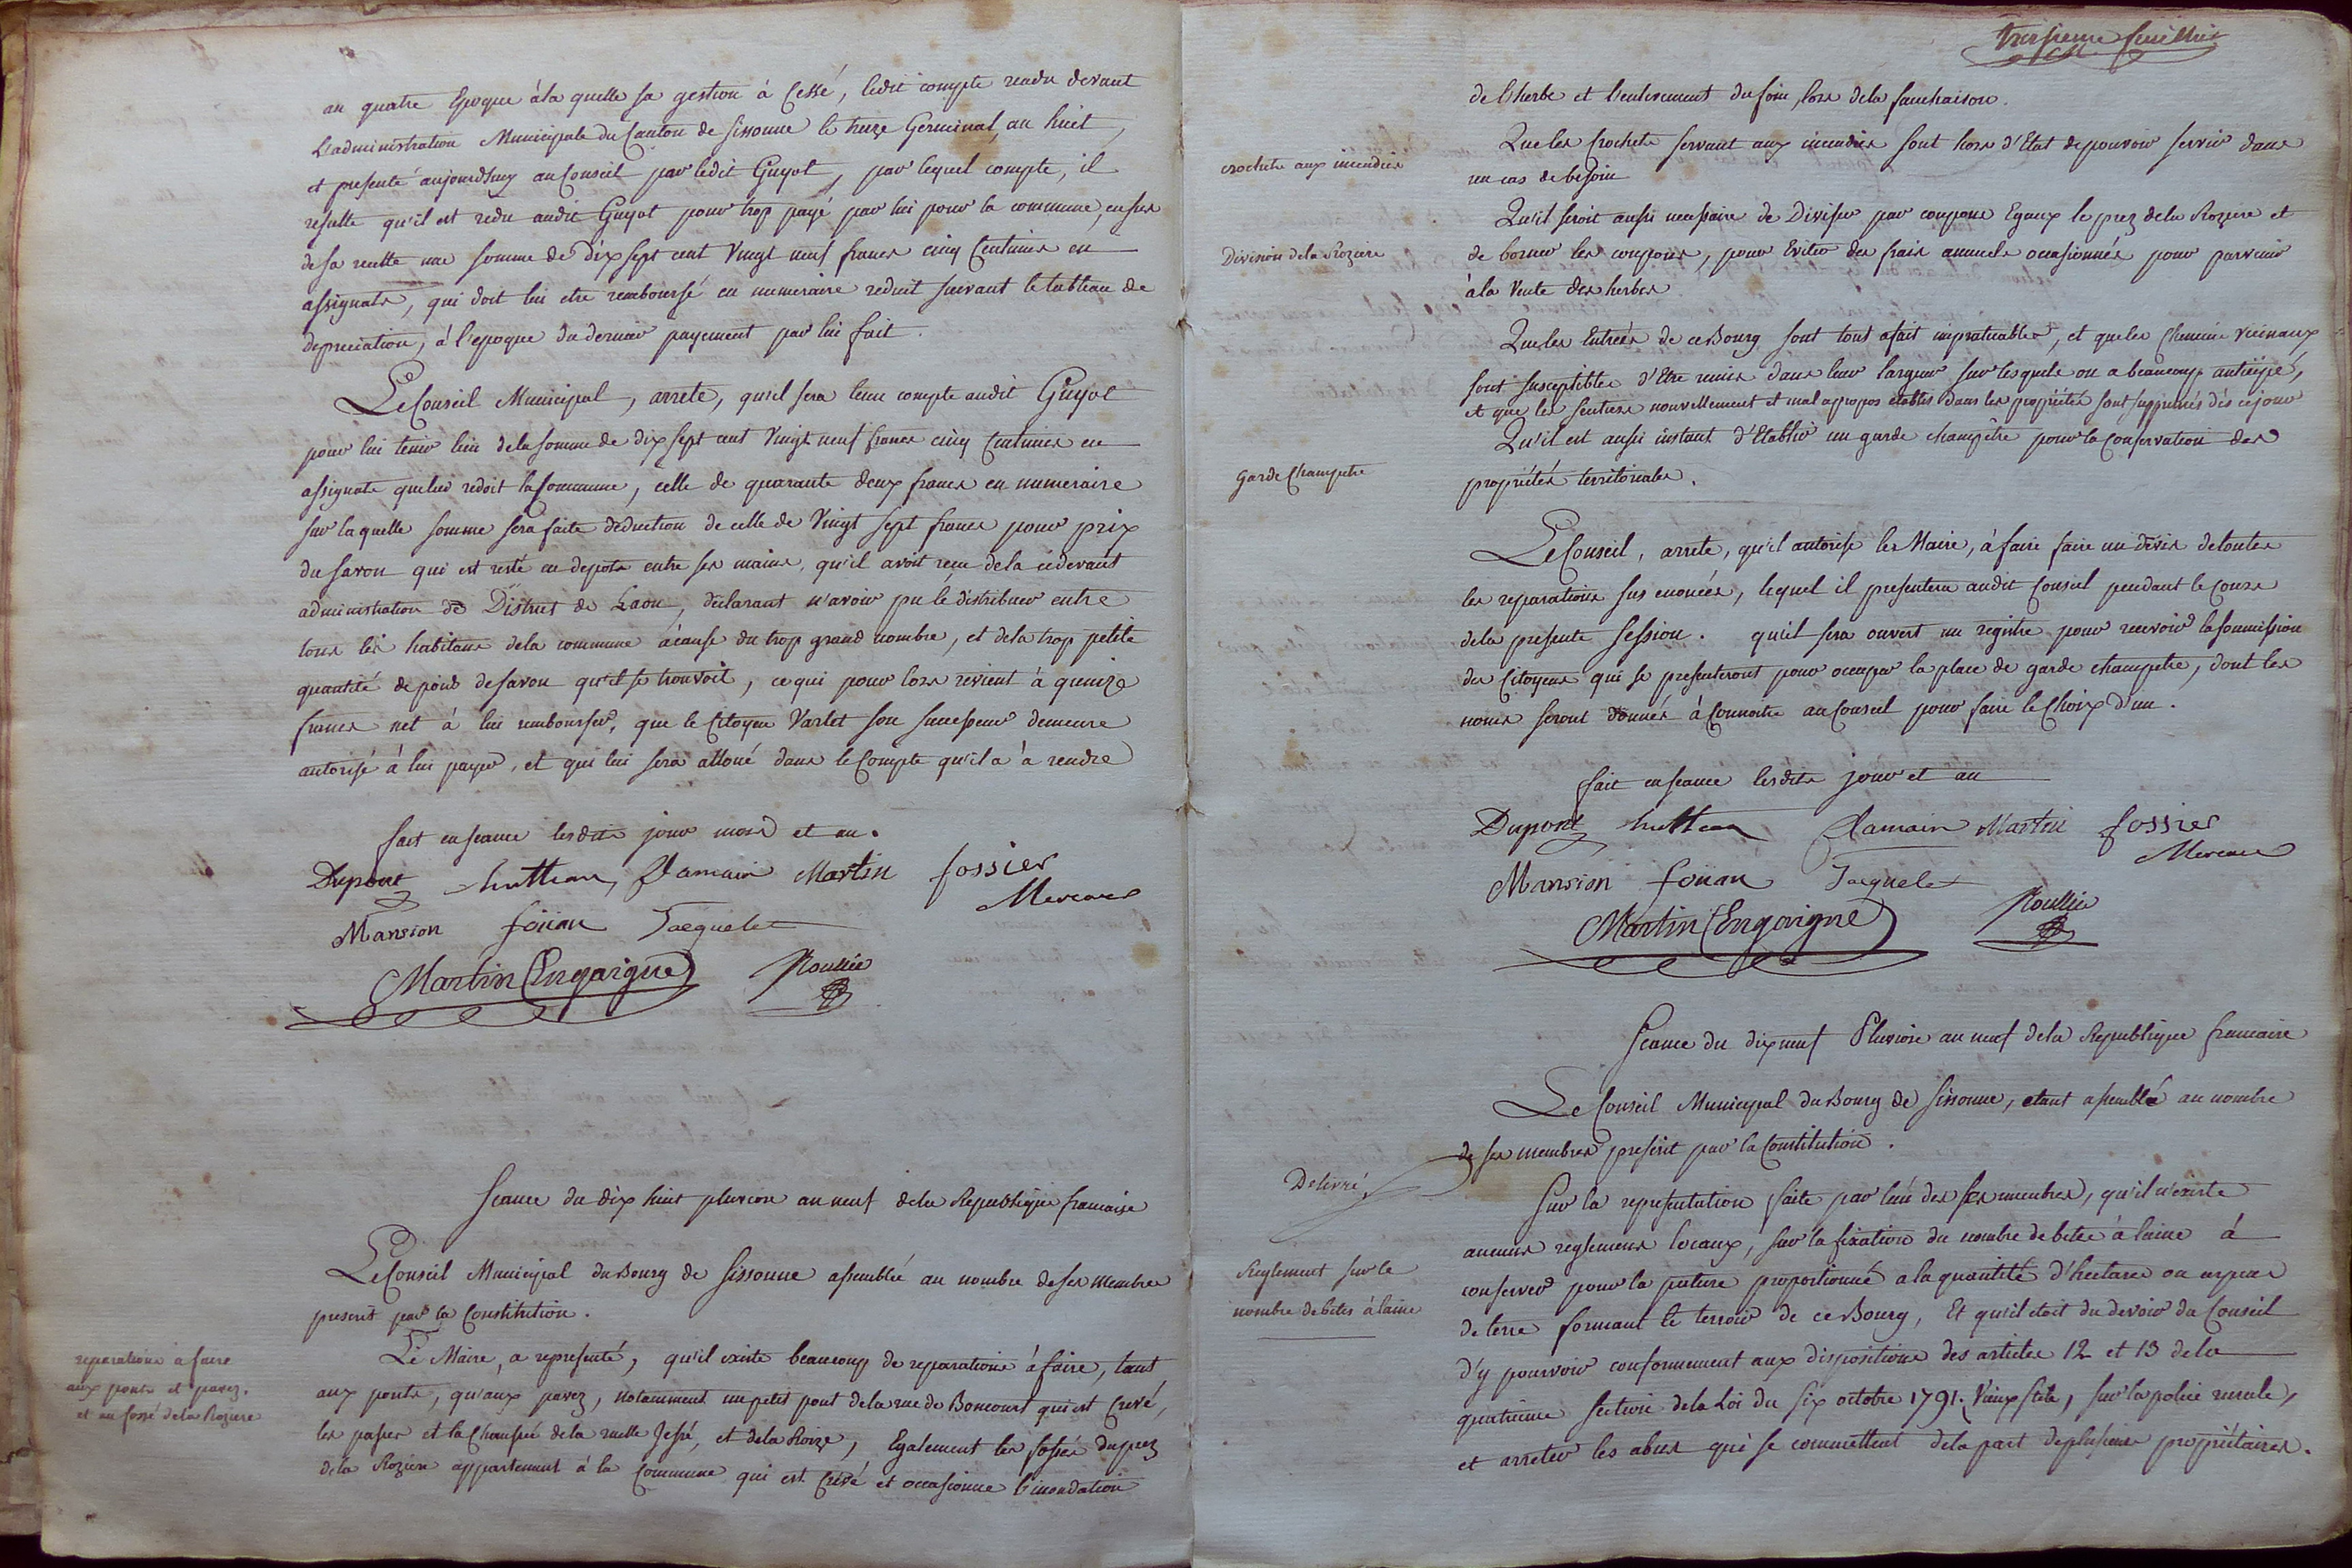 an quatre Epoque à la quelle sa gestion à Cessé, ledit compte rendu devant
L'administration Municipale du Canton de Sissonne le treize Germinal, an huit,
et presenté aujourdhuy au Conseil par ledit Guyot, par lequel compte, il
resulte qu'il est redu audit Guyot pour trop payé par lui pour la commune, en sus
de sa recette une somme de Dix sept cent Vingt neuf francs cinq Centimes en
assignats, qui doit lui etre remboursé en numeraire reduit suivant le tableau de
depreciation, à l'epoque du dernier payement par lui fait.
Le Conseil Municipal, arrete, qu'il sera tenu compte audit Guyot
pour lui tenir lieu de la somme de dix sept cent Vingt neuf francs cinq Centimes en
assignats que lui redoit la Commune, celle de quarante deux francs en numeraire
sur laquelle somme sera faite deduction de celle de Vingt sept francs pour prix
du savon qui est resté en depots entre ses mains, qu'il avoit reçu de la cidevant
administration de District de Laon, déclarant n'avoir pu le distribuer entre
tous les habitans de la commune à cause du trop grand nombre, et de la trop petite
quantité de poid de savon qu'il se trouvoit, ce qui pour lors revient à quinze
francs net à lui rembourser, que le Citoyen Varlet son successeur demeure
autorisé à lui payer, et qui lui sera alloué dans le Compte qu'il a à rendre
fait en seance lesdits jour mois et an.
Dupont hutteau Damain Martin fossier
Mereau
Mansion foüan Jacquelet
Martin Lengaigne Roullié
Seance du dix huit pluviose an neuf de la Republique francaise
Le Conseil Municipal du Bourg de Sissonne assemblée au nombre de ses membres
prescrit par la Constitution.
reparations a faire
aux ponts et pavez.
et au fossé de la Roziere
Le Maire, a representé, qu'il existe beaucoup de reparations à faire, tant
aux ponts, qu'aux pavez, notamment un petit pont de la rue de Boncourt qui est Crevé,
les passes et la Chaussée de la ruelle Jessé, et de la Roize, Egalement les fossés du prez
de la Roziere appartenant à la Commune qui est Crevé et occasionne l'inondation
troisieme feuillet
de l'herbe et l'enlevement du foin, lors de la fauchaison.
crochets aux incendies
Que les Crochets servant aux incendies sont hors d'Etat de pouvoir servir dans
un cas de besoin
Division de la Roziere
Qu'il seroit aussi necessaire de Diviser par coupons Egaux le prez de la Roziere et
de borner les coupons, pour Eviter des frais annuels ocasionnés pour parvenir
à la Vente des herbes
Que les Entrées de ce Bourg sont tout a fait impratiuables, et que les Chemins vicinaux
sont susceptibles d'Etre remis dans leur largeur sur lesquels on a beaucoup anticippé,
et que les sentiers nouvellement et mal apropos etablis dans les propriétés sont supprimés dès ce jour
Garde Champetre
Qu'il est aussi instant d'Etablir un garde champêtre pour la Conservation des
propriétés territoriales.
Le Conseil, arrete, qu'il autorise les Maire, à faire faire un devis de toutes
les reparations sus enoncées, lequel il presentera audit Conseil pendant le Cours
de la presente session. qu'il sera ouvert un registre pour recevoir la soumission
des Citoyens qui se presenteront pour occuper la place de garde champetre, dont les
noms seront donnés à Connoitre au Conseil pour faire le Choix d'un.
fait en seance lesdits jour et an
Dupont hutteau Damain Martin fossier
Mereau
Mansion foüan Jacquelet
Martin Lengaigne Roullié
Seance du dix neuf Pluviose an neuf de la Republique francaise
Le Conseil Municipal du Bourg de Sissonne, etant assemblé au nombre
de ses membres prescrit par la Constitution.
Delivré
Sur la representation faite par l'un des ses membres, qu'il n'existe
aucuns reglemens locaux, sur la fixation du nombre de betes à laine à
Reglement sur le
nombre de betes à laine
conserver pour la pature proportionné a la quantité d'hectares ou arpens
de terre formant le terroir de ce Bourg, Et qu'il etoit du devoir du Conseil
d'y pourvoir conformement aux dispositions des articles 12 et 13 de la
quatrieme section de la Loi du six octobre 1791. Vieux stile, sur la police rurale,
et arreter les abus qui se commettent de la part de plusieurs propriétaires.